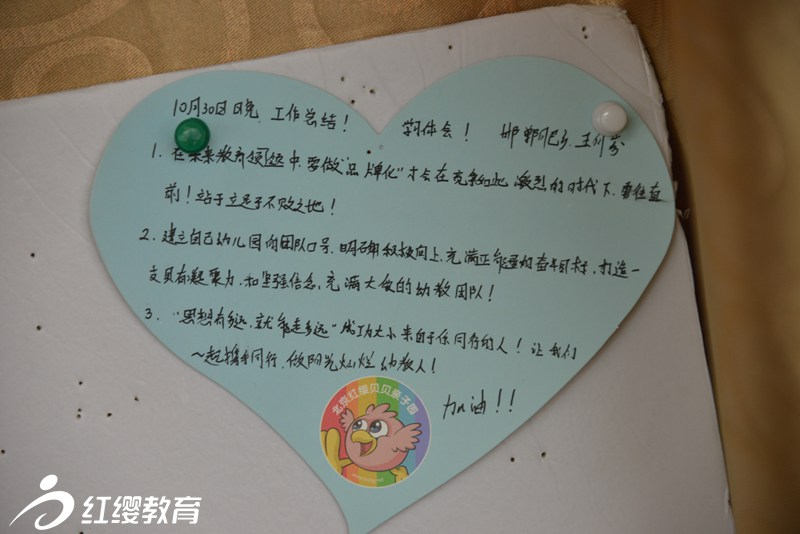 10月30日晚.工作总结! 学习体会! 邯郸肥乡.王
1.在未来教育领域中.要做"品牌化"才会在竞争如此激烈的时代下.勇往直
前!站于立足于不败之地!
2.建立自己幼儿园的团队口号.明确积极向上.充满正能量的奋斗目标.打造一
支具有凝聚力.和坚强信念.充满大爱的幼教团队!
3."思想有多远.就能走多远"成功大小来自于你同行的人!让我们
一起携手同行.做阳光灿烂幼教人!
加油!!
北京红缨贝贝亲子园
红缨教育